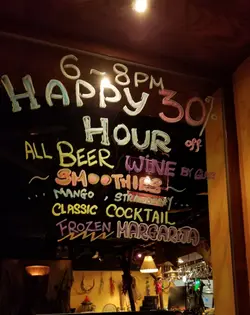 6~8PM
HAPPY 30%
HOUR off
ALL BEER WINE BY GLASS
~ SMOOTHIES ~
MANGO, STRAWBERRY
CLASSIC COCKTAIL
FROZEN MARGARITA